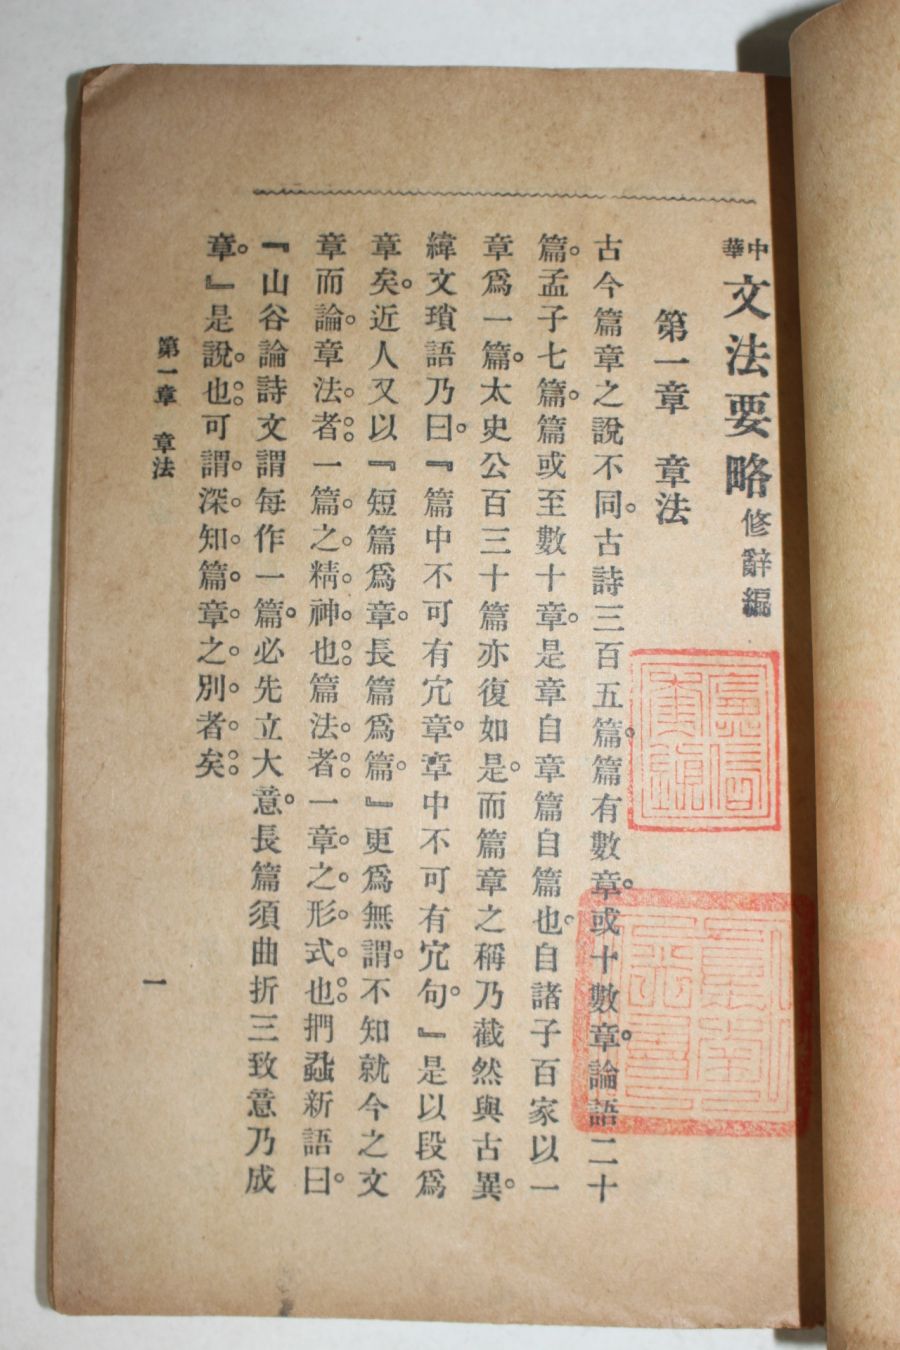 中華文法要略修辭編
第一章　章法
古今篇章之說不同。古詩三百五篇。篇有數章。或十數章。論語二十
篇。孟子七篇。篇或至數十章。是章自章篇自篇也。自諸子百家以一
章爲一篇。太史公百三十篇亦復如是。而篇章之稱乃截然與古異。
緯文瑣語乃曰。『篇中不可有冗章。章中不可有冗句。』是以段爲
章矣。近人又以『短篇爲章。長篇爲篇。』更爲無謂。不知就今之文
章而論。章法者。一篇之精神也。篇法者。一章之形式也。捫蝨新語曰。
『山谷論詩文謂每作一篇。必先立大意。長篇須曲折三致意乃成
章。』是說也。可謂深知篇章之別者矣。
第一章　章法
一